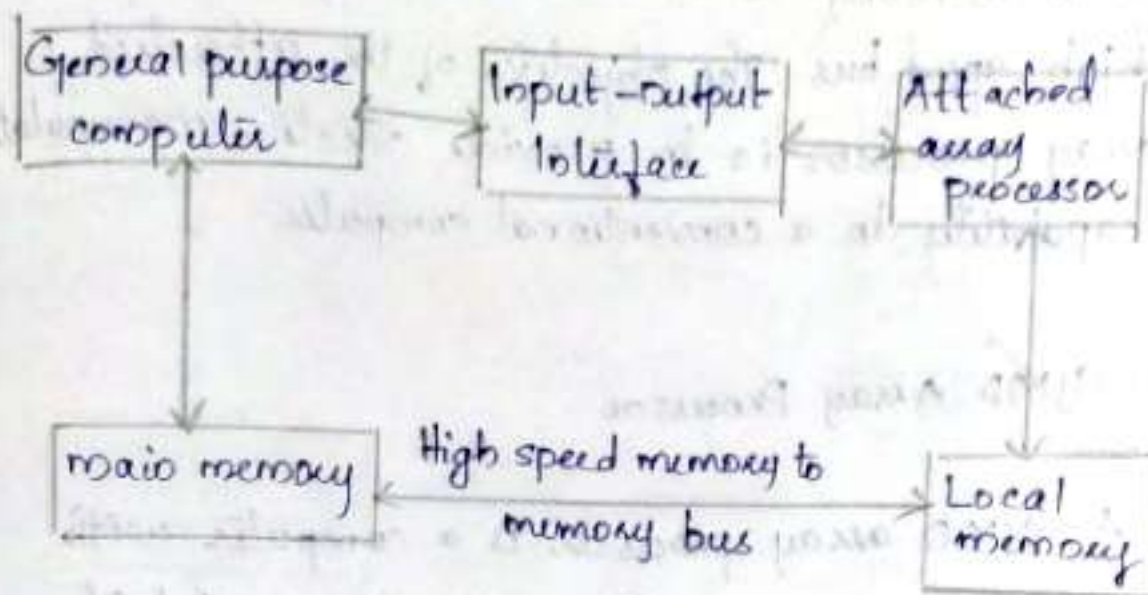 General purpose
computer
Input-output
Interface
Attached
array
processor
main memory
High speed memory to
memory bus
Local
memory
SIMD Array Processor